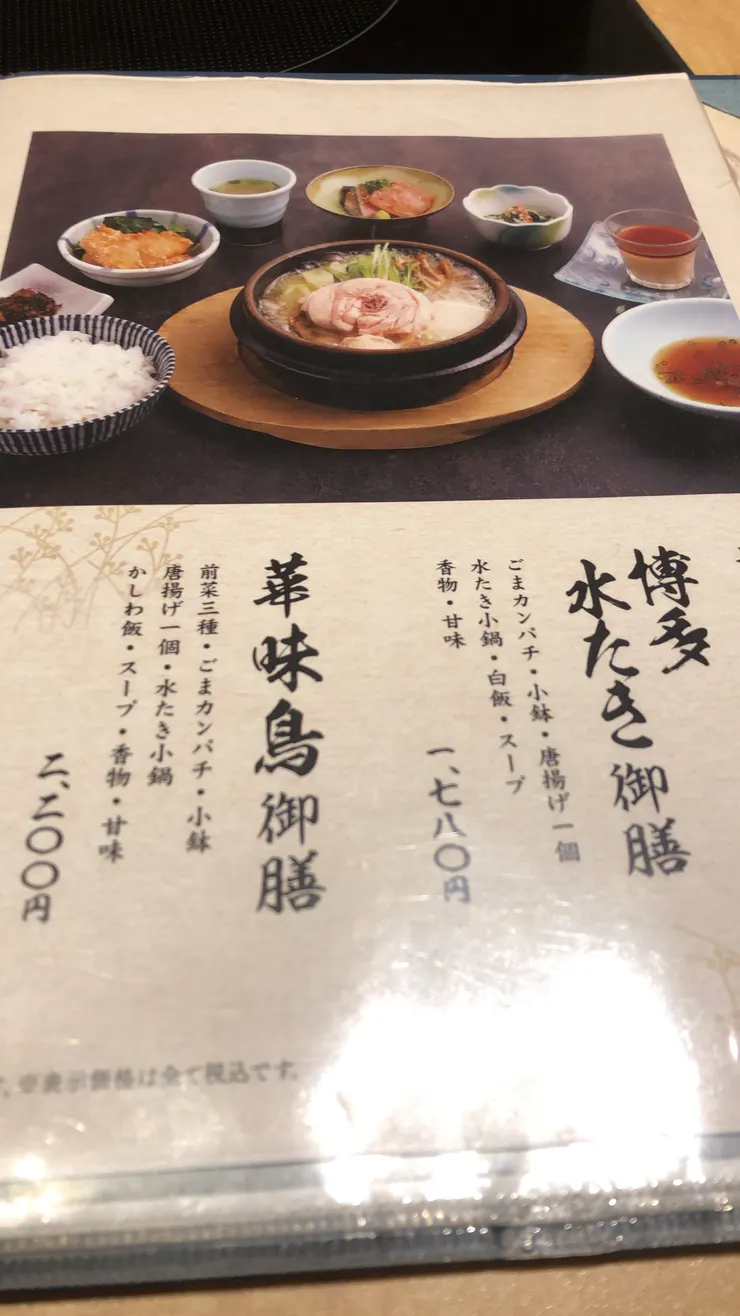 博多
水たき御膳
ごまカンパチ・小鉢・唐揚げ一個
水たき小鍋・白飯・スープ
香物・甘味
一、七八〇円
華味鳥御膳
前菜三種・ごまカンパチ・小鉢
唐揚げ一個・水たき小鍋
かしわ飯・スープ・香物・甘味
二、二〇〇円
す。※表示価格は全て税込です。